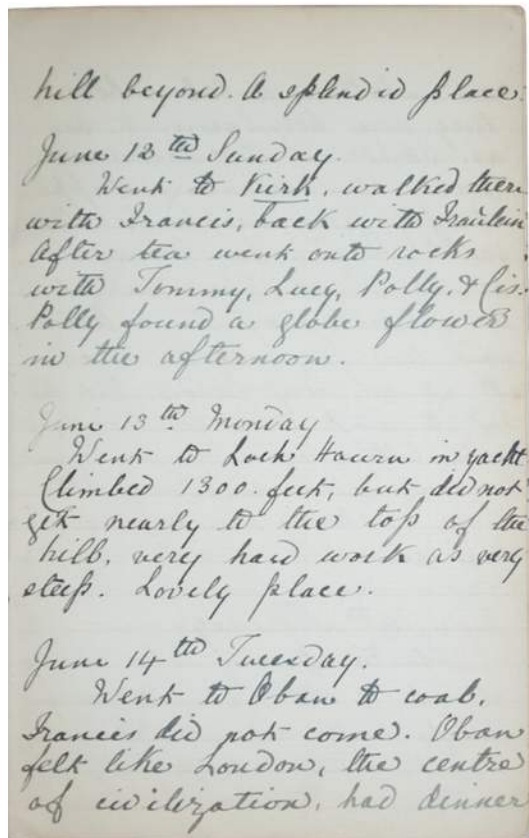 hill beyond. A splendid place.
June 12th Sunday.
Went to Kirk, walked there
with Francis, back with Fraülein
After tea went onto rocks
with Tommy, Lucy, Polly, & Cis.
Polly found a globe flower
in the afternoon.
June 13th Monday
Went to Loch Hourn in yacht
Climbed 1300 feet, but did not
get nearly to the top of the
hill, very hard work as very
steep. Lovely place.
June 14th Tuesday.
Went to Oban to coal.
Francis did not come. Oban
felt like London, the centre
of civilization, had dinner